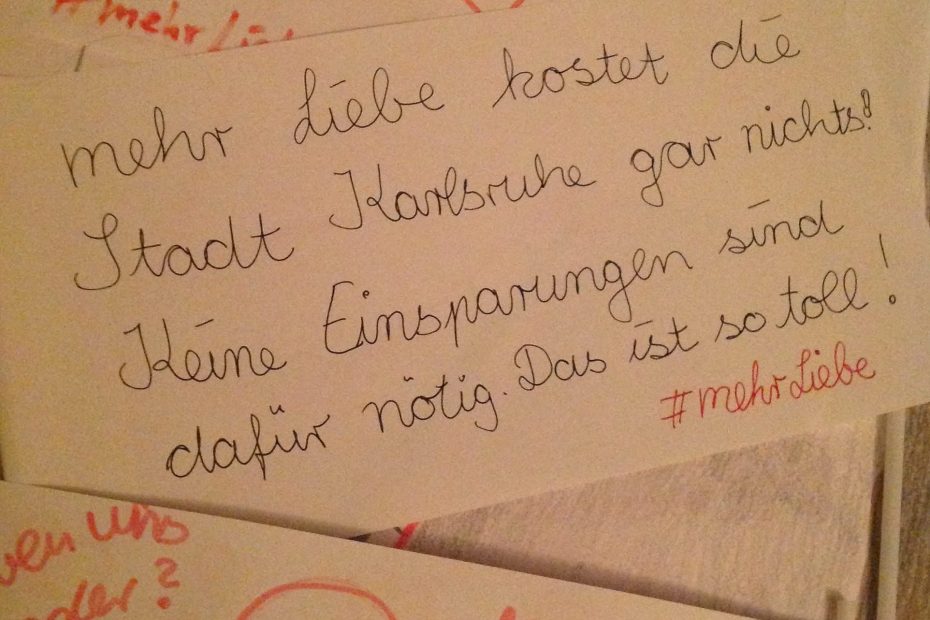 #mehr
mehr Liebe kostet die
Stadt Karlsruhe gar nichts!
Keine Einsparungen sind
dafür nötig. Das ist so toll!
#mehrLiebe
uns